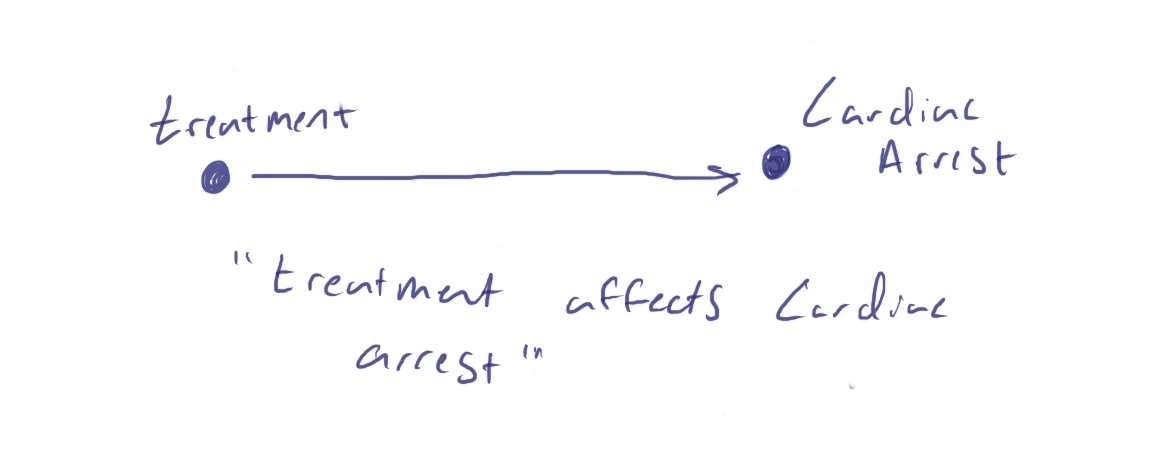 treatment
Cardiac
Arrest
"treatment affects Cardiac
arrest"